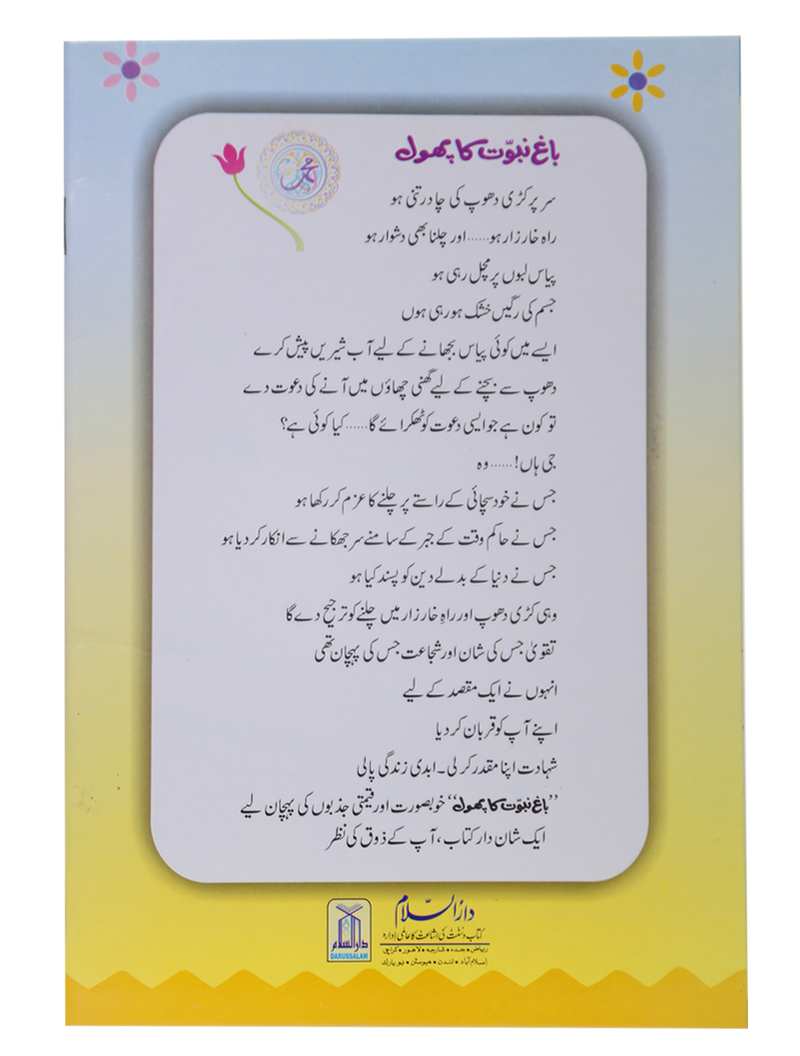 باغِ نبوّت کا پھول
محمد
سر پر کڑی دھوپ کی چادر تنی ہو
راہ خارزار ہو...... اور چلنا بھی دشوار ہو
پیاس لبوں پر مچل رہی ہو
جسم کی رگیں خشک ہو رہی ہوں
ایسے میں کوئی پیاس بجھانے کے لیے آب شیریں پیش کرے
دھوپ سے بچنے کے لیے گھنی چھاؤں میں آنے کی دعوت دے
تو کون ہے جو ایسی دعوت کو ٹھکرائے گا...... کیا کوئی ہے؟
جی ہاں!...... وہ
جس نے خود سچائی کے راستے پر چلنے کا عزم کر رکھا ہو
جس نے حاکم وقت کے جبر کے سامنے سر جھکانے سے انکار کر دیا ہو
جس نے دنیا کے بدلے دین کو پسند کیا ہو
وہی کڑی دھوپ اور راہِ خارزار میں چلنے کو ترجیح دے گا
تقویٰ جس کی شان اور شجاعت جس کی پہچان تھی
انہوں نے ایک مقصد کے لیے
اپنے آپ کو قربان کر دیا
شہادت اپنا مقدر کر لی۔ ابدی زندگی پا لی
”باغِ نبوّت کا پھول“ خوبصورت اور قیمتی جذبوں کی پہچان لیے
ایک شان دار کتاب، آپ کے ذوق کی نظر
دارالسّلام
کتاب و سُنّت کی اشاعت کا عالمی ادارہ
ریاض • جدہ • شارجہ • لاہور • کراچی
اِسلام آباد • لندن • ہیوسٹن • نیو یارک
دارالسلام
DARUSSALAM